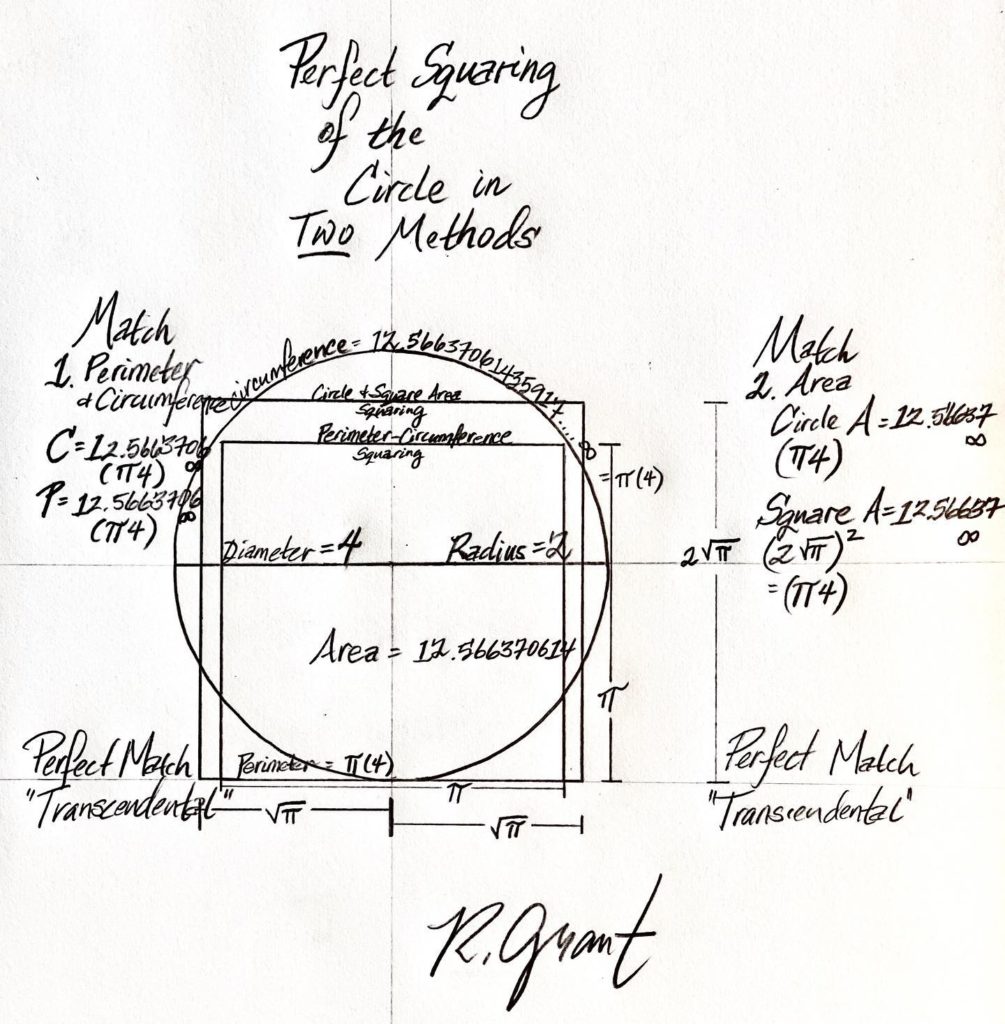 Perfect Squaring
of the
Circle in
Two Methods
Match
1. Perimeter
& Circumference
C=12.5663706
∞
(π4)
P=12.5663706
∞
(π4)
circumference= 12.56637061435917.... ∞
= π(4)
Circle & Square Area
Squaring
Perimeter-Circumference
Squaring
Diameter = 4
Radius = 2
Area = 12.566370614
Perimeter = π(4)
π
π
√π
√π
2√π
Match
2. Area
Circle A = 12.56637
∞
(π4)
Square A=12.56637
∞
(2√π)²
=(π4)
Perfect Match
"Transcendental"
Perfect Match
"Transcendental"
R. Grant